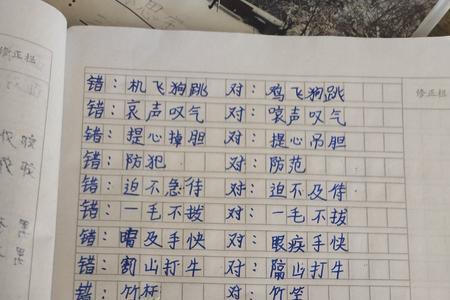 修正栏
修正栏
错：机飞狗跳 对：鸡飞狗跳
错：哀声叹气 对：唉声叹气
错：提心掉胆 对：提心吊胆
错：防犯 对：防范
错：迫不急待 对：迫不及待
错：一毛不拔 对：一毛不拔
错：眼及手快 对：眼疾手快
错：割山打牛 对：隔山打牛
错：竹杆 对：竹竿